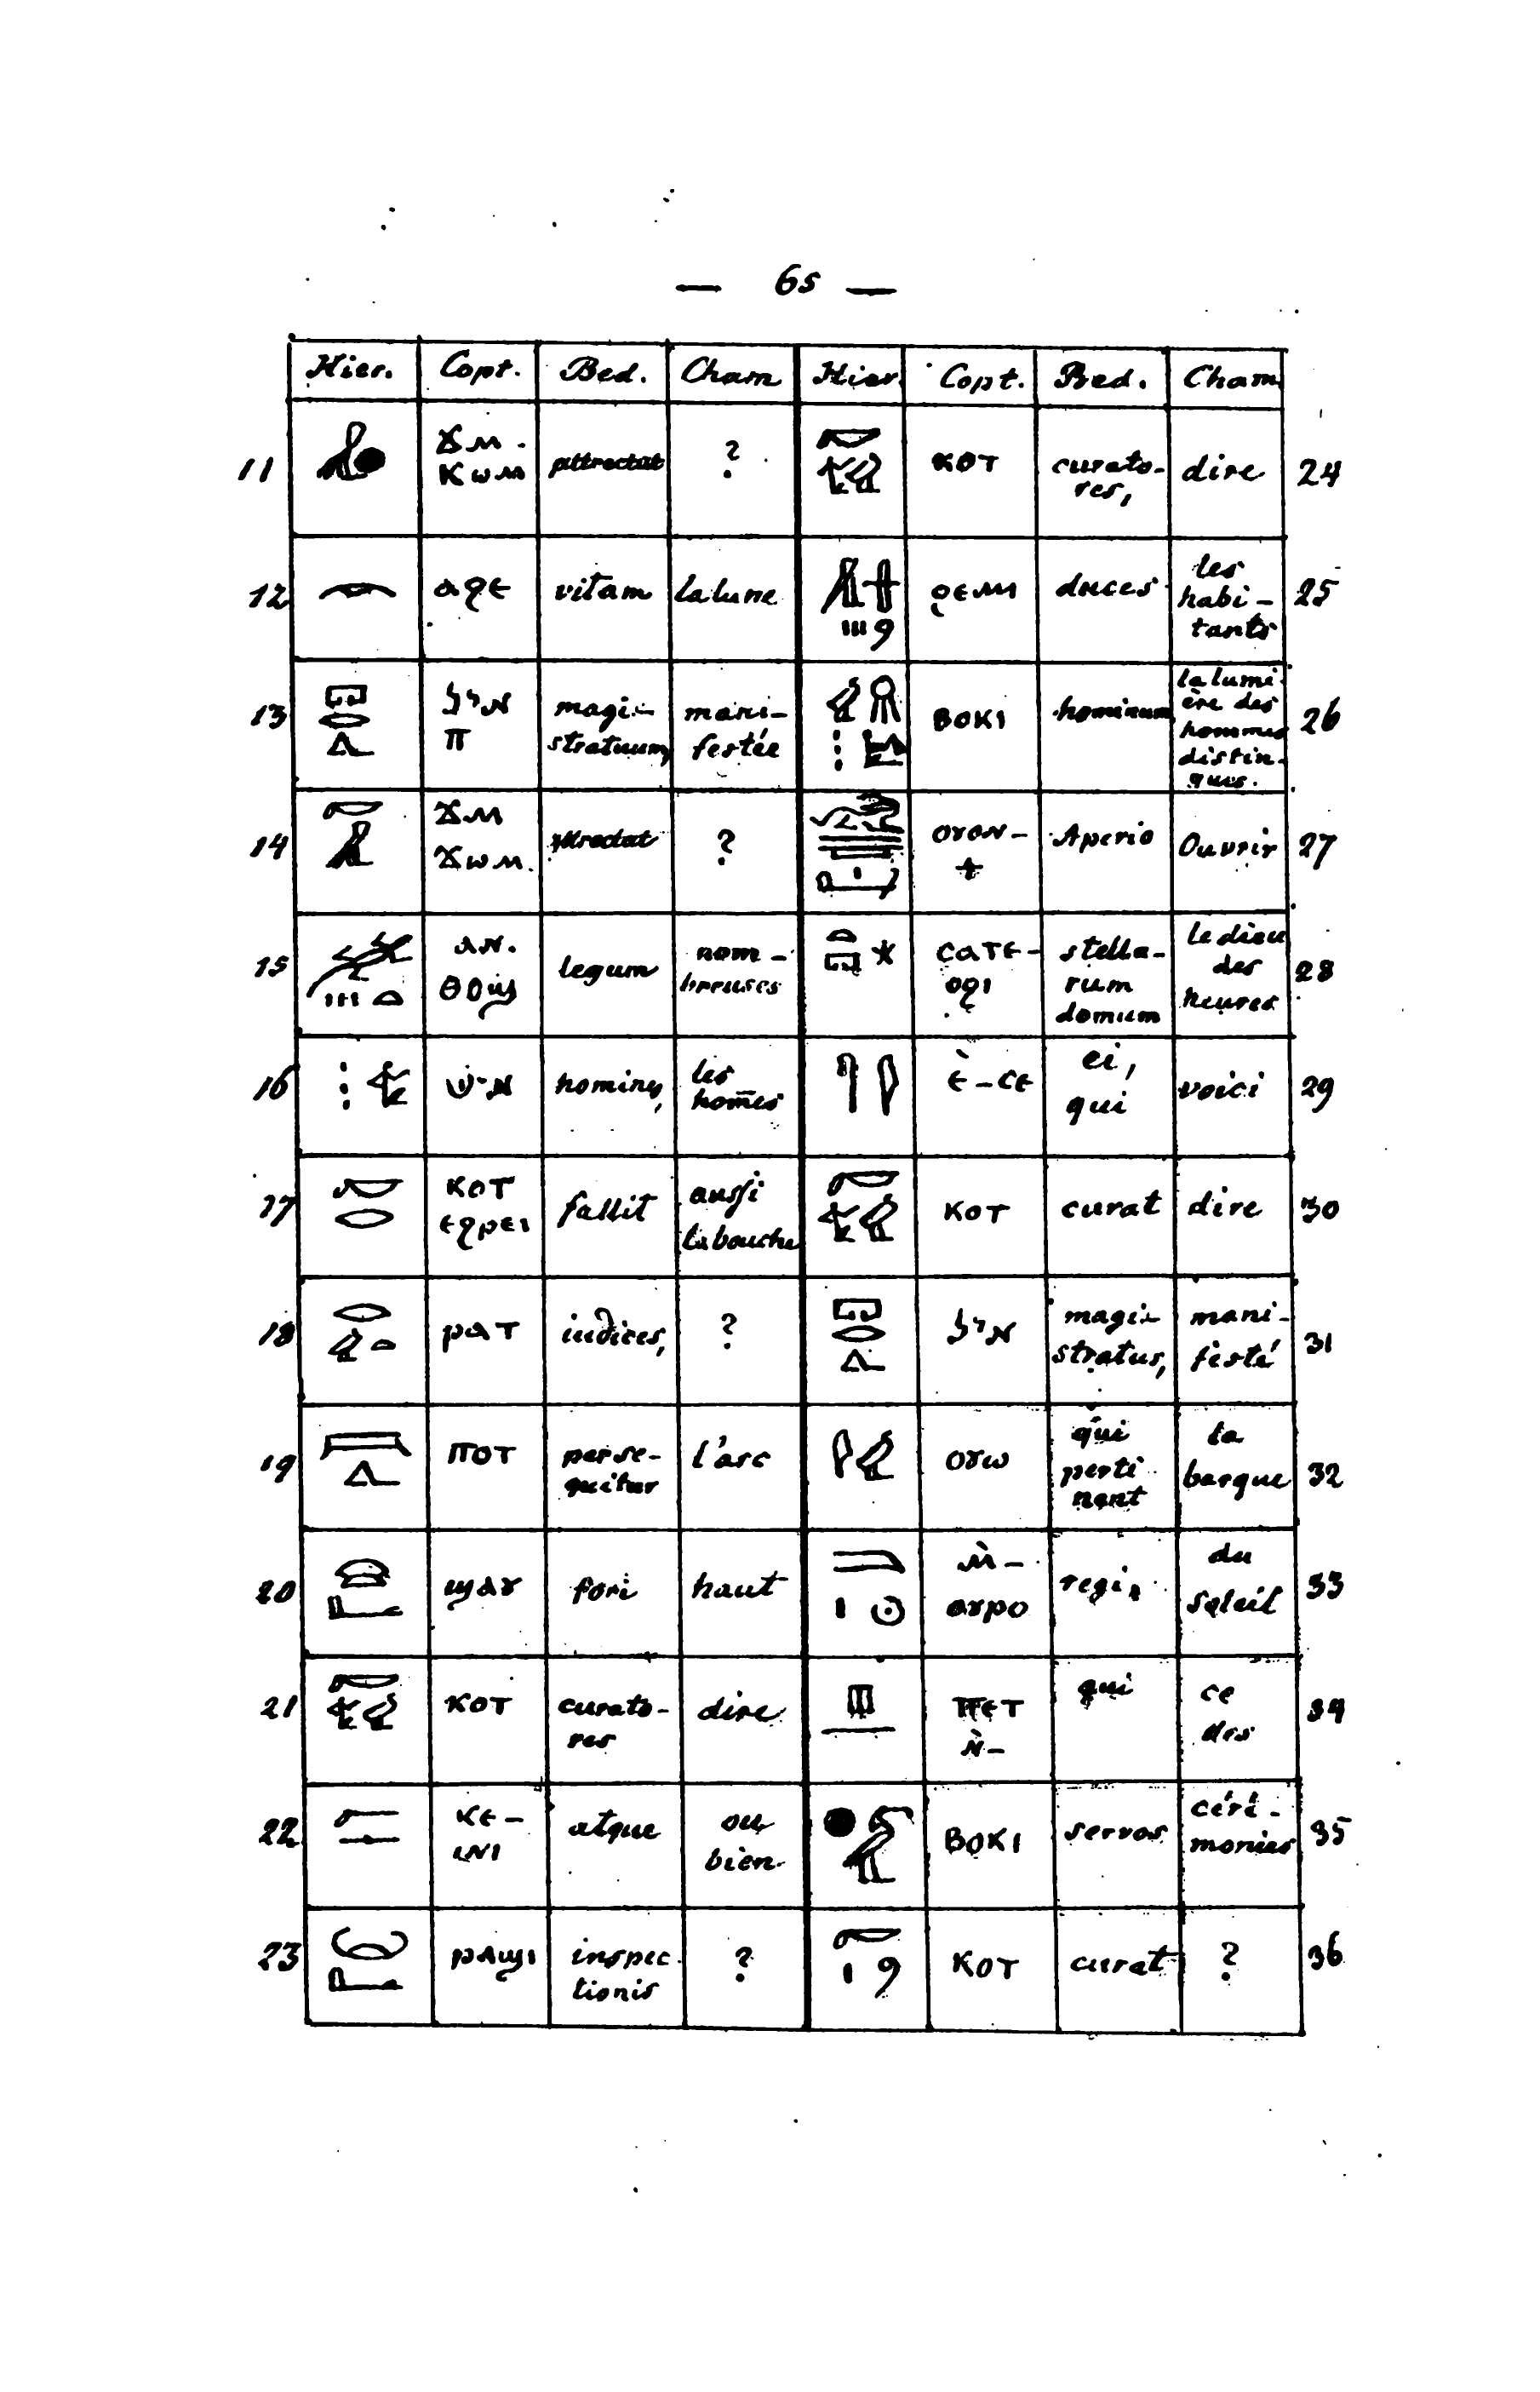 — 65 —
Hier. Copt. Bed. Cham Hier. Copt. Bed. Cham
11 ϫⲙ. ⲕⲱⲙ attrectat ?
ⲕⲟⲧ curato-res, dire 24
12 ⲁϥⲉ vitam la lune
ϩⲉⲙ duces les habi-tants 25
13 magi-stratuum, mani-festée
ⲃⲟⲕⲓ hominum la lumi-ère des hommes distin-gués. 26
14 ϫⲙ ϫⲱⲙ. attrectat ?
ⲟⲩⲟⲛ- Aperio Ouvrir 27
15 ⲁⲛ. ⲑⲟϣ legum nom-breuses
ⲥⲁⲧⲉ-ⲟϩⲓ stella-rum domum le dieu des heures 28
16 homines, les hom̅es
ⲉ̀-ⲥⲉ ei, qui voici 29
17 ⲕⲟⲧ ⲉϥⲣⲉⲓ fallit aussi la bouche
ⲕⲟⲧ curat dire 30
18 ⲣⲁⲧ iudices, ?
magi-stratus, mani-festé 31
19 ⲡⲟⲧ perse-quitur l'arc
ⲟⲩⲱ qui perti nent la barque 32
20 ϣⲁⲩ fori haut
ⲙ̀-ⲟⲩⲣⲟ regi, du soleil 33
21 ⲕⲟⲧ curato-res dire
ⲡⲉⲧ ⲛ̀- qui ce des 34
22 ⲕⲉ-ⲓⲛⲓ atque ou bien
ⲃⲟⲕⲓ servos céré-monies 35
23 ⲣⲁϣⲓ inspec tionis ?
ⲕⲟⲧ curat ? 36